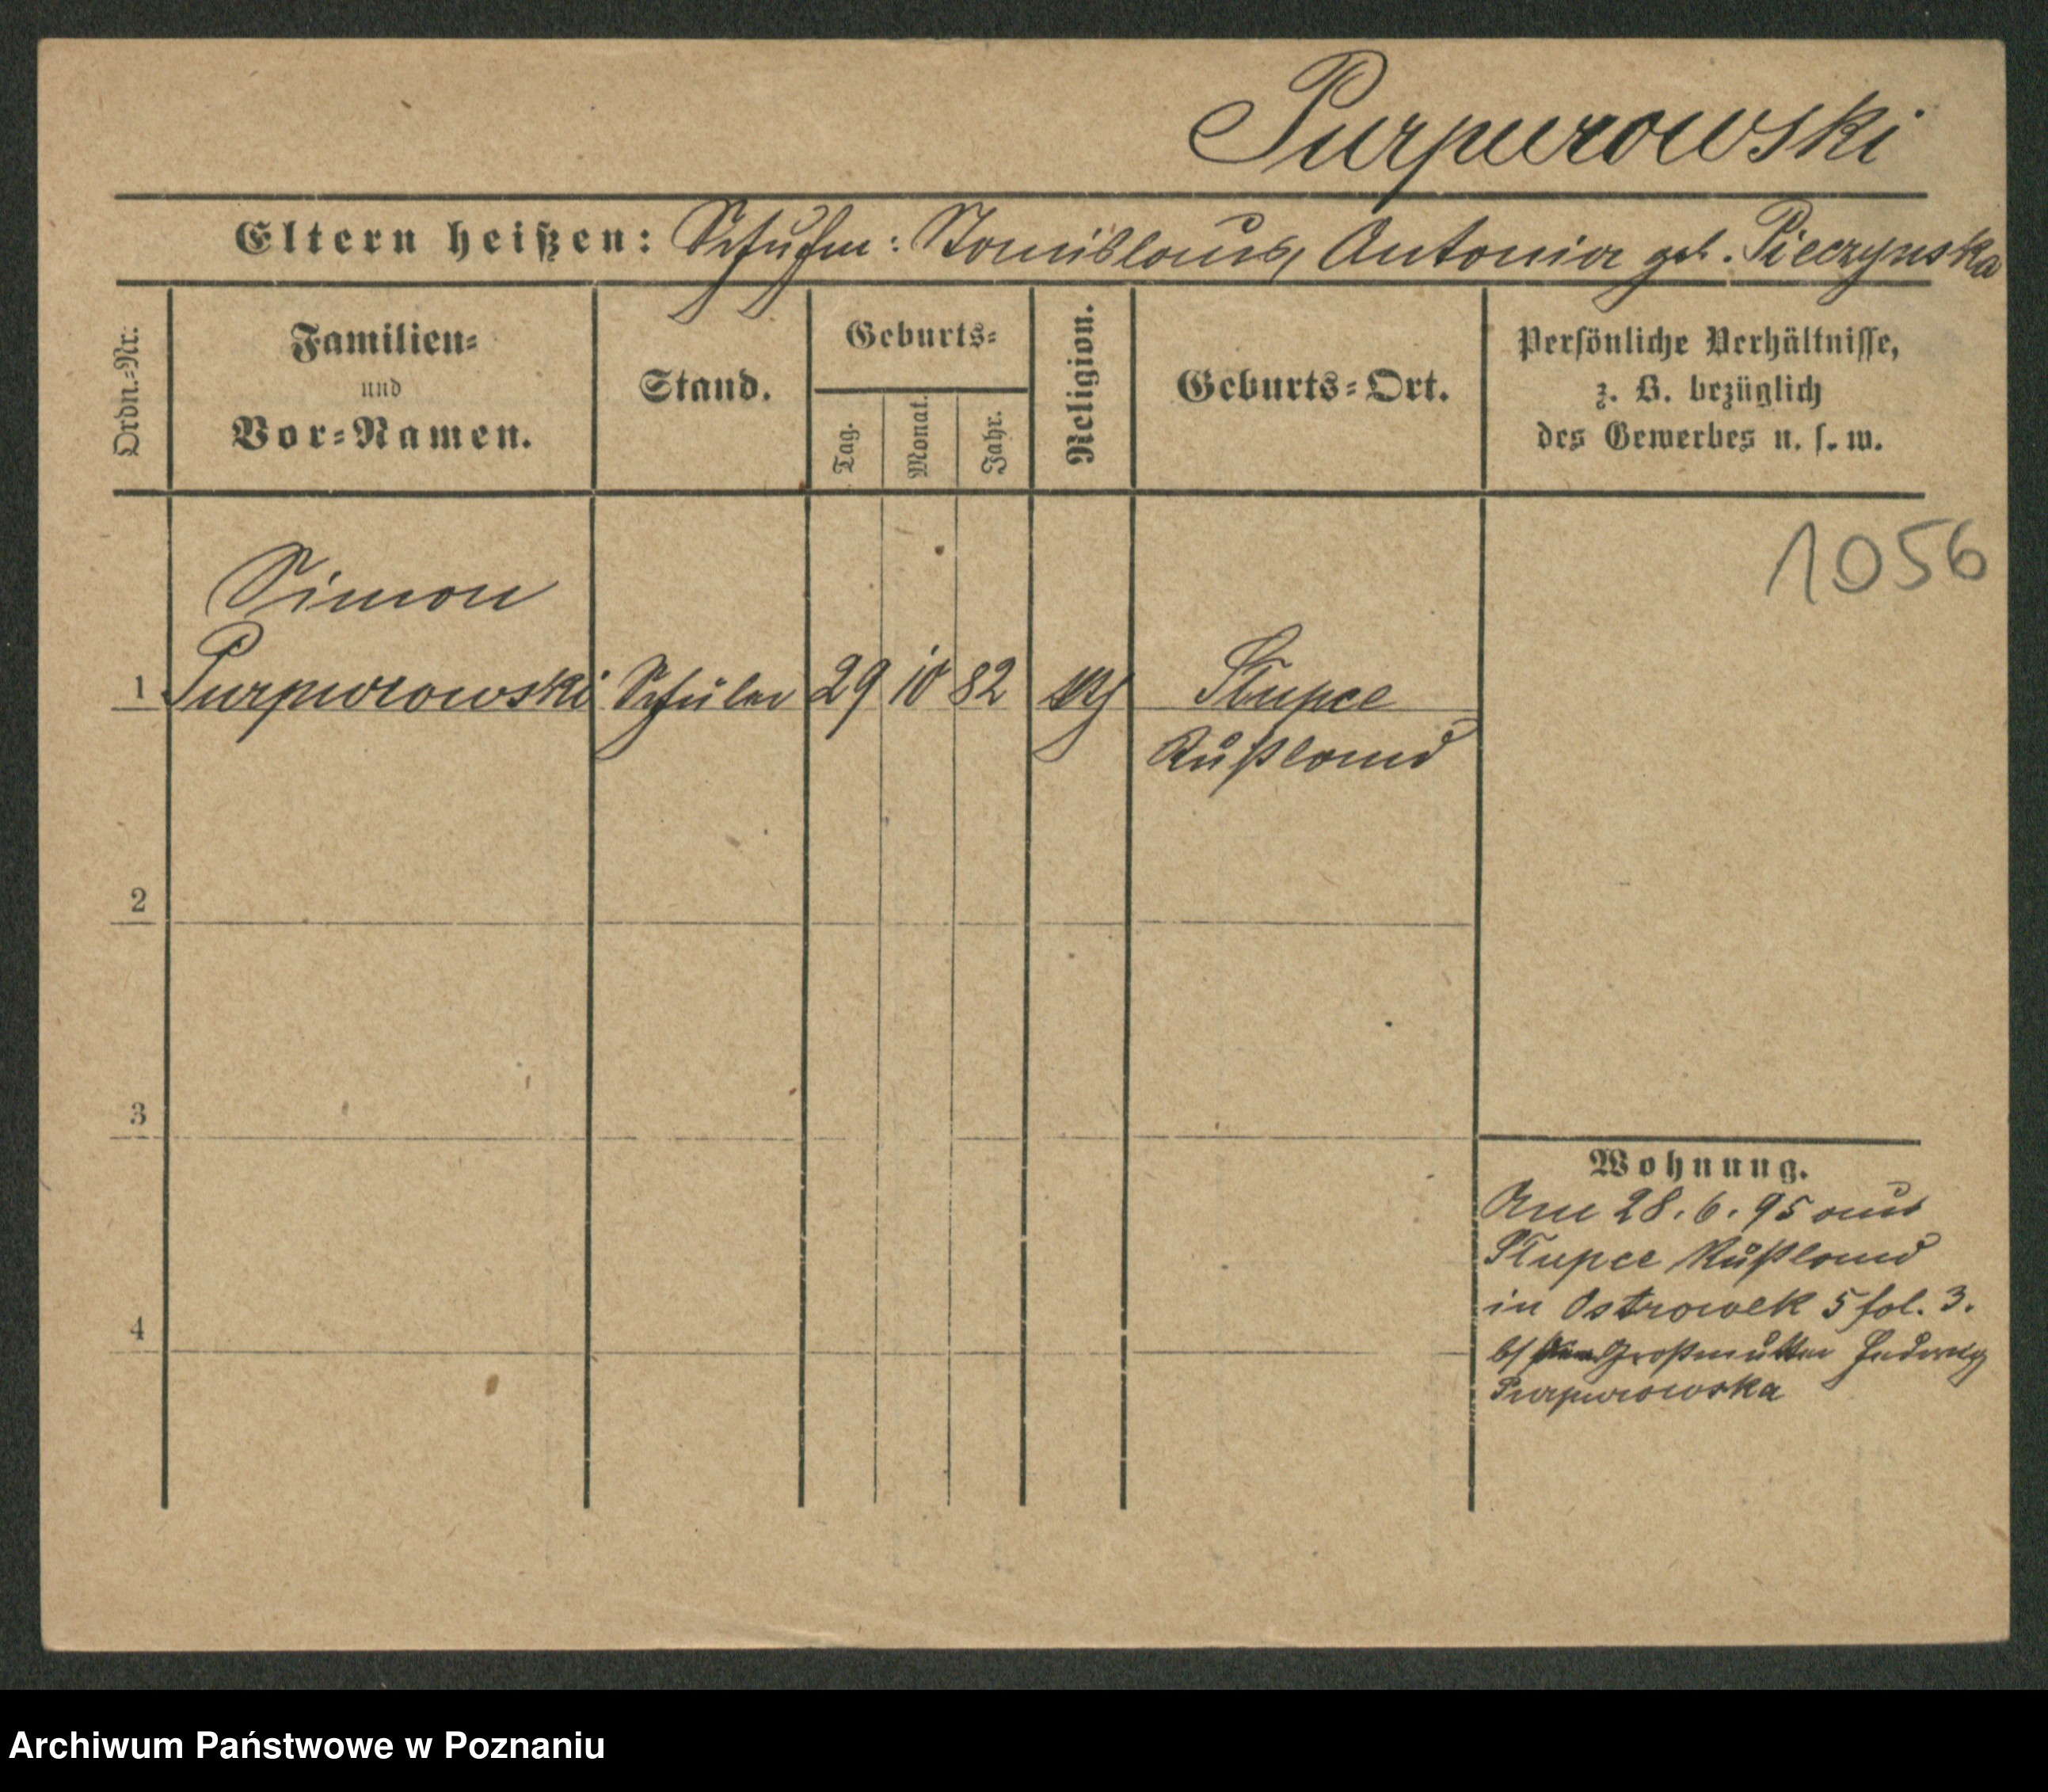 Purpurowski
Eltern heißen: Schuhm: Stanislaus, Antonia geb. Pieczynska
Ordn.-Nr.
Familien-
und
Vor-Namen.
Stand.
Geburts-
Tag.
Monat.
Jahr.
Religion.
Geburts-Ort.
Persönliche Verhältnisse,
z. B. bezüglich
des Gewerbes u. s. w.
1056
Simon
1 Purpurowski Schüler 29 10 82 Słupce
Rußland
2
3
4
Wohnung.
Am 28. 6. 95 aus
Słupce Rußland
in Ostrowek 5 fol. 3.
b/ Großmutter Hedwig
Purpurowska
Archiwum Państwowe w Poznaniu